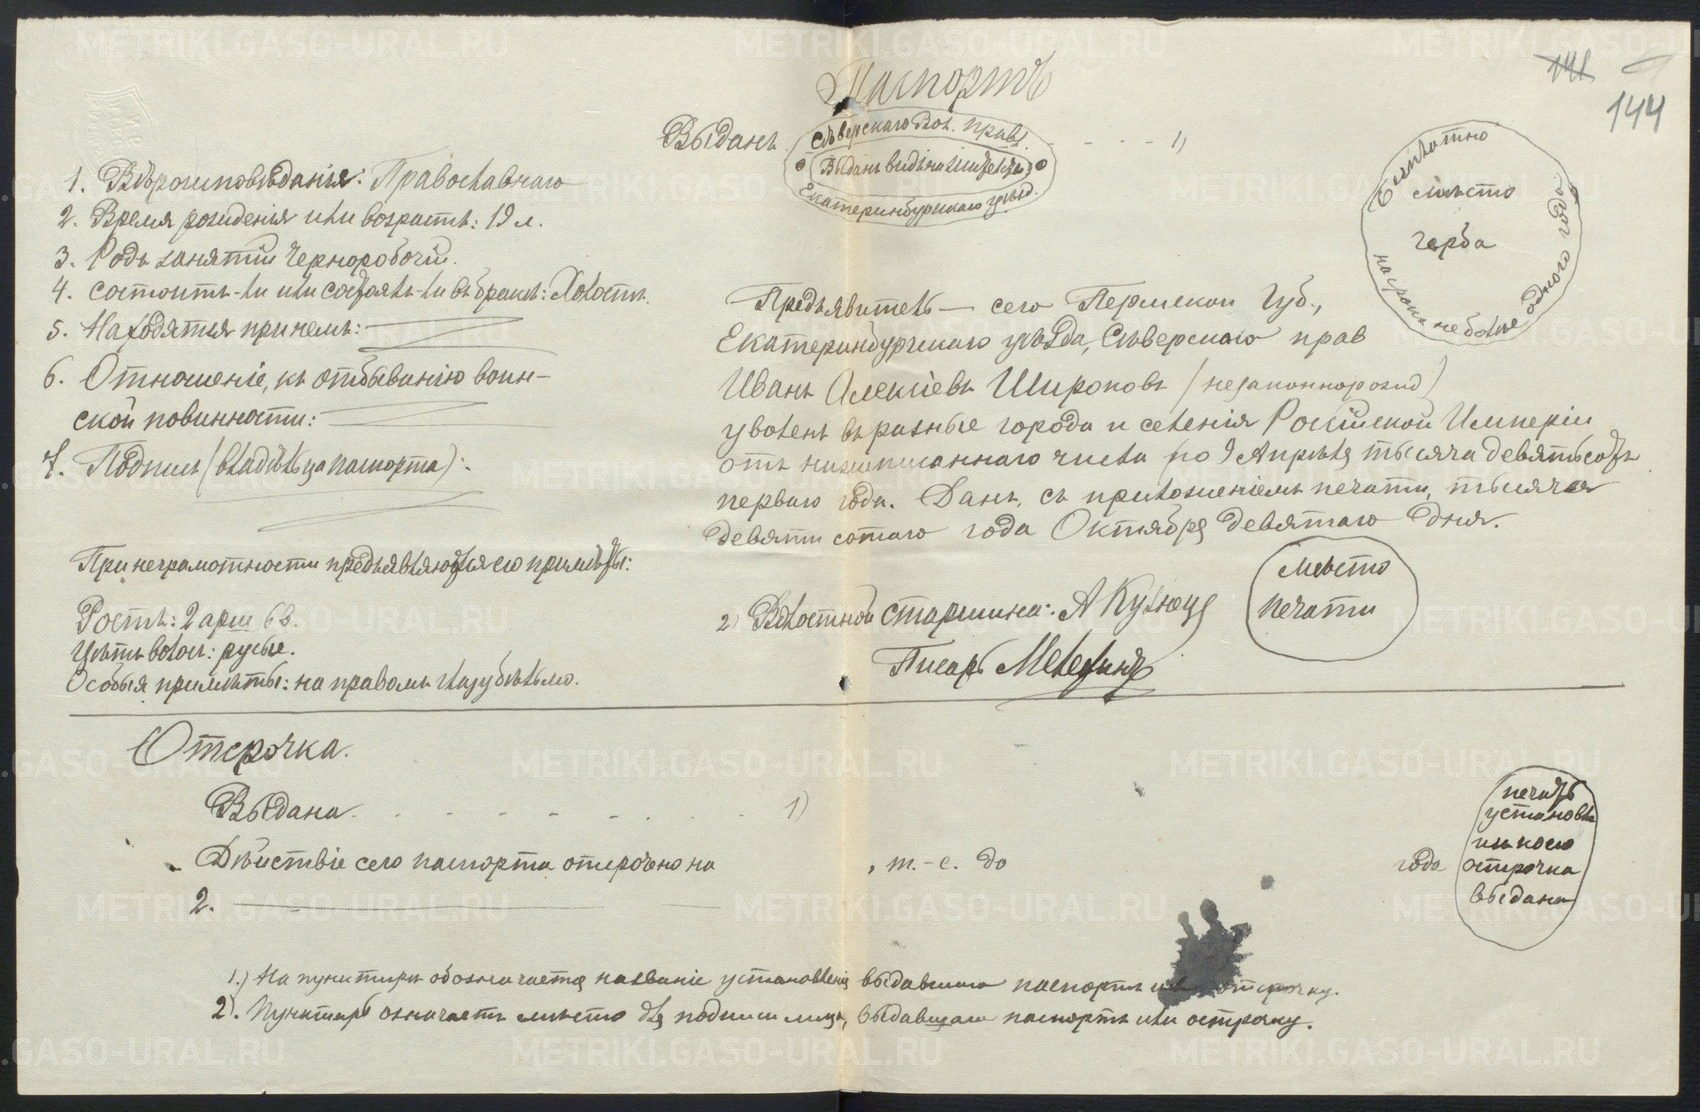 Паспортъ
141
144
Выданъ
Сѣверскаго Вол. Правл.
Выданъ видѣн
Екатеринбургскаго уѣзд.
1)
Безплатно
мѣсто
герба
на срокъ неболѣе одного года.
1. Вѣроисповѣданія: Православнаго
2. Время рожденія или возрастъ: 19 л.
3. Родъ занятій Чернорабочій.
4. Состоитъ-ли или состоялъ-ли въ бракѣ: Холостъ.
5. Находятся при немъ:
6. Отношеніе, къ отбыванію воин-
ской повинности:
7. Подпись (владѣльца паспорта):
При неграмотности предъявляются его примѣты:
Ростъ: 2 арш 6 в.
Цвѣтъ волос: русые.
Особыя примѣты: на правомъ глазу бѣльмо.
Предъявитель — сего Пермской Губ.,
Екатеринбургскаго уѣзда, Сѣверскаго прав
Иванъ Алексѣевъ Широковъ (незаконнорожд)
уволенъ въ разные города и селенія Россійской Имперіи
отъ нижеписаннаго числа по 9 Апрѣля тысяча девятьсотъ
перваго года. Данъ, съ приложеніемъ печати, тысяча
девятисотаго года Октября девятаго дня.
2) Волостной старшина: А Кузнец
Писарь
мѣсто
печати
Отсрочка.
Выдана 1)
Дѣйствіе сего паспорта отсрочено на , т.-е. до года
2.
печать
установле
остр​очка
выдана
1.) На пунктирѣ обозначается названіе установленія выдавшаго паспортъ или отсрочку.
2). Пунктиръ означаетъ мѣсто для подписи лица, выдавшаго паспортъ или острочку.
METRIKI.GASO-URAL.RU